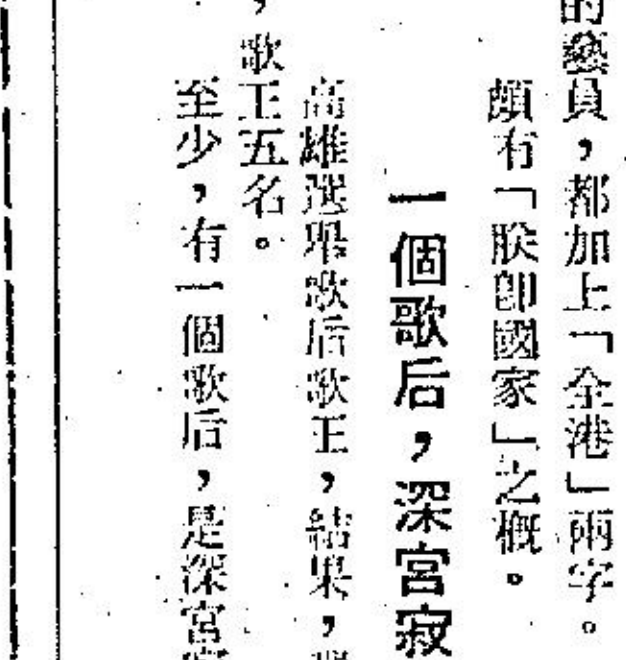 的藝員，都加上「全港」兩字。
頗有「朕卽國家」之概。
一個歌后，深宮寂
高雄選舉歌后歌王，結果，
，歌王五名。
至少，有一個歌后，是深宮